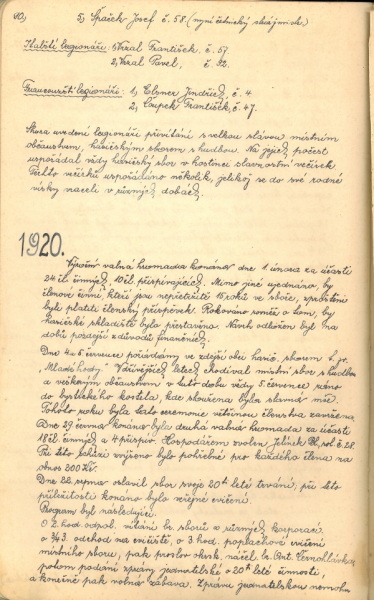 40,
5, Špaček Josef č. 58. (nyní četnický strážmistr.)
Italští legionáři: 1, Vrzal František č. 57.
2, Vrzal Pavel, č. 92.
Francouzští legionáři: 1, Elsner Jindřich, č. 4.
2, Coufek František, č. 47.
Shora uvedení legionáři přivítáni s velkou slávou místním
občanstvem, hasičským sborem s hudbou. Na jejich počest
uspořádal vždy hasičský sbor v hostinci slavnostní večírek
Těchto večírků uspořádáno několik, jelikož se do své rodné
vísky vraceli v různých dobách.
1920.
Výroční valná hromada konána dne 1 února za účasti
24 čl. činných, 10 čl. přispívajících. Mimo jiné ujednáno, by
členové činní, kteří jsou nepřetržitě 15 roků ve sboru, zproštěni
byli platiti členský příspěvek. Rokováno rovněž o tom, by
hasičské skladiště bylo přestavěno. Návrh odložen byl na
dobu pozdější z důvodů finančních.
Dne 4 a 5 července pořádány ve zdejší obci hasič. sborem t. zv.
"Mladé hody". Dřívějších letech chodíval místní sbor s hudbou
a veškerým občanstvem v tuto dobu vždy 5. července ráno
do bystrického kostela, kde sloužena byla slavná mše.
Tohoto roku byla tato ceremonie většinou členstva zavržena.
Dne 29 června konána byla druhá valná hromada za účasti
18 čl. činných a 4 přispív. Hospodářem zvolen Jelínek čís. pol. č. 28.
Při této schůzi zvýšeno bylo pohřebné pro každého člena na
obnos 200 Kč.
Dne 22. srpna oslavil sbor svoje 20ti leté trvání, při této
příležitosti konáno bylo veřejné cvičení.
Program byl následující:
O 2. hod. odpol. vítání br. sborů z různých korporací.
o 3/4 3. odchod na cvičiště, o 3 hod. poplachové cvičení
místního sboru, pak proslov okrsk. náčel. br. Ant.
potom podání zprávy jednatelské o 20ti leté činnosti,
a konečně pak volná zábava. Zprávu jednatelskou nemohu